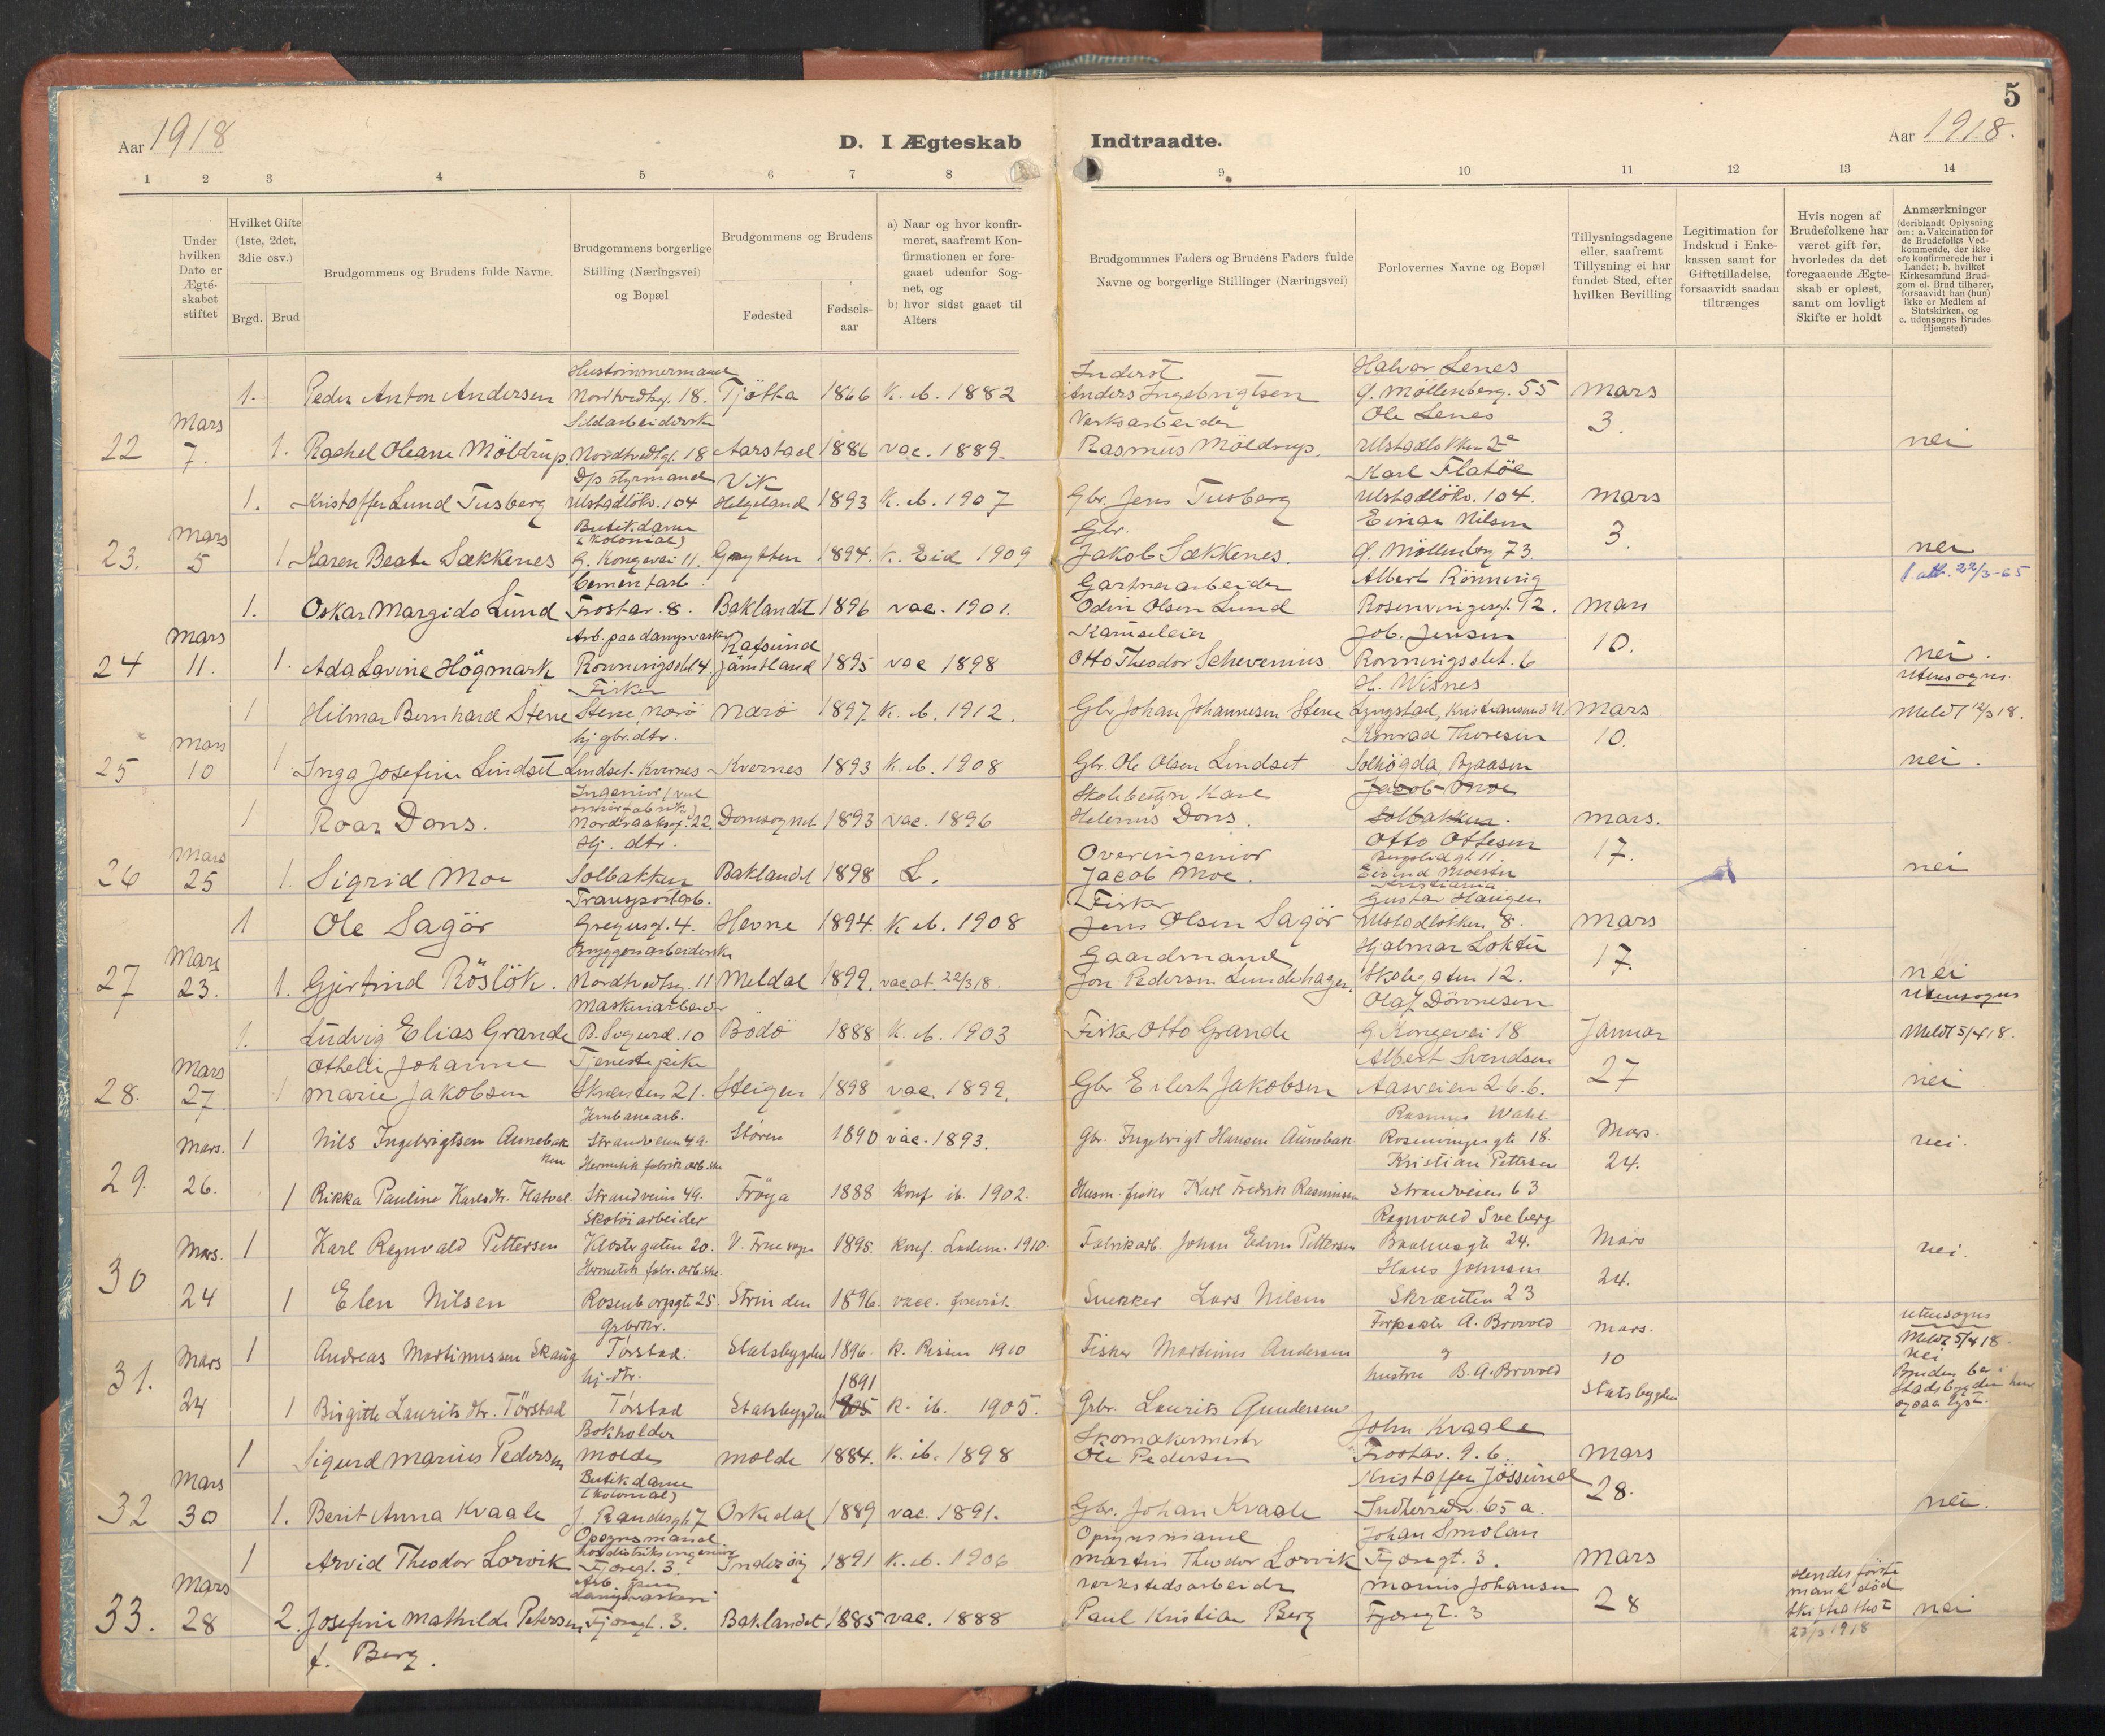 5
Aar 1918
D. I Ægteskab
Indtraadte.
Aar 1918.
1 2 3 4 5 6 7 8 9 10 11 12 13 14
Under hvilken Dato er Ægte-skabet stiftet
Hvilket Gifte (1ste, 2det, 3die osv.)
Brgd. Brud
Brudgommens og Brudens fulde Navne.
Brudgommens borgerlige Stilling (Næringsvei) og Bopæl
Brudgommens og Brudens
Fødested
Fødsels-aar
a) Naar og hvor konfir-meret, saafremt Kon-firmationen er fore-gaaet udenfor Sog-net, og
b) hvor sidst gaaet til Alters
Brudgommnes Faders og Brudens Faders fulde Navne og borgerlige Stillinger (Næringsvei)
Forlovernes Navne og Bopæl
Tillysningsdagene eller, saafremt Tillysning ei har fundet Sted, efter hvilken Bevilling
Legitimation for Indskud i Enke-kassen samt for Giftetilladelse, forsaavidt saadan tiltrænges
Hvis nogen af Brudefolkene har været gift før, hvorledes da det foregaaende Ægte-skab er opløst, samt om lovligt Skifte er holdt
Anmærkninger
(deriblandt Oplysning om: a. Vakcination for de Brudefolks Ved-kommende, der ikke ere konfirmerede her i Landet; b. hvilket Kirkesamfund Brud-gom el. Brud tilhører, forsaavidt han (hun) ikke er Medlem af Statskirken, og c. udensogns Brudes Hjemsted)
Hustømmermand Inderst Halvor Lenes
1. Peder Anton Andersen Nordtvedtsg. 18. Tjøtta 1866 K. ib. 1882 Anders Ingebrigtsen Ø. Möllenberg. 55 Mars
Mars Sildarbeiderske Verksarbeider Ole Lenes 3.
22 7. 1. Rachel Oleane Möldrup. Nordtvedtgt. 18 Aarstad 1886 vac. 1889. Rasmus Möldrup. nei
D/s styrmand Vik Karl Flatöe
1. Kristoffer Lund Tusberg Ulstadløkv. 104 Helgeland 1893 K. ib. 1907 Gbr. Jens Tusberg Ulstadlökv. 104. Mars
Mars Butikdame (Kolonial) Gbr. Einar Nilsen 3.
23. 5 1 Karen Beate Sækkenes G. Kongevei 11. Grytten 1894. K. Eid 1909 Jakob Sækkenes. Ø. Möllenberg 73. nei
Cementarb. Gartnerarbeider Albert Rönning 1 att. 22/3-65
1. Oskar Margido Lund Frostav. 8. Baklandet 1896 vac. 1901. Odin Olsen Lund Rosenvingesgt. 12. Mars
Mars Arb. paa dampvaskr. Rafsund Job. Jensen 10.
24 11. 1. Ada Lovine Högmark Rønningsslet 4. Jämtland 1895 vac 1898 Otto Theodor Schevenius Ronningsslet. 6 nei.
Fisker H. Wisnes Utensogns.
1 Hilmar Bernhard Stene Stene, Nærö Nærö 1897. K. ib. 1912. Gbr Johan Johannesen Stene Lyngstad, Kristiansund N. Mars. Meldt 12/3 18.
Mars hj gbr.dtr. Konrad Thoresen 10.
25 10 1 Inga Josefine Lindset Lindset. Kvernes Kvernes 1893 K. ib. 1908 Gbr. Ole Olsen Lindset Solhögda, Byaasen nei.
Skolebestyr. Karl Jacob Moe
1 Roar Dons. Nordraaksgt. 22. Domsognet 1893 vac. 1896 Helenus Dons. Solbakken. Mars.
Mars Hj. dtr. Overingeniör Otto Ottesen 17.
26 25 1. Sigrid Moe Solbakken Baklandet 1898 L. Jacob Moe. Kristiania nei
Transportarb. Fisker Gustav Haugen
1 Ole Sagör Gregusgt. 4. Hevne 1894. K. ib. 1908 Jens Olsen Sagör Ulstadlökken 8. Mars
Mars Bryggeriarbeiderske Gaardmand Hjalmar Lokter 17.
27 23. 1. Gjertrud Röslök. Nordtvedtsg. 11 Meldal 1899. vacat. 22/3 18. Jon Pedersen Lundshagen. Skolegaten 12. nei
Maskinarbeider Olaf Dönnesen Utensogns
1. Ludvig Elias Grande B. Sigurd. 10 Bodö 1888 K. ib. 1903 Fisker Otto Grande G. Kongevei 18 Januar Meldt 5/4 18.
Mars Othelie Johanne Tjenestepike Albert Svendsen 27
28. 27. 1 Marie Jakobsen Skrænten 21. Steigen 1898 vac. 1899. Gbr Eilert Jakobsen Aasveien 26. b. nei
Jernbanearb. Rasmus Wahl.
Mars. 1 Nils Ingebrigtsen Aunebak Strandveien 49. Støren 1890 vac. 1893. Gbr. Ingebrigt Hansen Aunebak Rosenvingesgt. 18. Mars. nei.
ken Hermetik fabrik arb.ske Kristian Pettersen 24.
29. 26. 1 Rikka Pauline Karlsdtr. Flatval Strandveien 49. Fröya 1888 konf. ib. 1902. Husm. fisker Karl Fredrik Rasmussen Strandveien 63
Skotöiarbeider Ragnvald Sveberg
Mars. 1 Karl Ragnvald Pettersen Klostergaten 20. V. Frue sogn 1895. konf. Ladem. 1910. Fabrikarb. Johan Edvin Pettersen Baahusgt. 24. Mars nei.
30 Hermetik fabr. arb.ske. Hans Johnsen 24.
24 1 Elen Nilsen Rosenborggt. 25. Strinden 1896. vacc. forevist. Snekker Lars Nilsen Skrænten 23
Grbrkr. Forpakter A. Brovold utensogns
Mars 1 Andreas Martinussen Skaug Tørstad. Statsbygden 1896. K. Rissen 1910 Fisker Martinus Andersen og Mars. Meldt 5/4 18. nei
31. hj-dtr. 1891 hustru B. A. Brovold 10
24 1 Birgitte Laurits dtr. Törstad Tørstad Statsbygden K. ib. 1905. Grbr. Laurits Gundersen Statsbygden
Bruden bor i Stadsbygden
ogsaa lyst.
Bokholder Skomakermestr John Kvaale
1 Sigurd Marius Pedersen Molde Molde 1884. K. ib. 1898 Ole Pedersen Frostav. 9. b. Mars
Mars Butikdame (Kolonial) Kristoffer Jössund 28.
32 30 1. Berit Anna Kvaale J. Randesgt. 7 Orkedal 1889 vac. 1891. Gbr. Johan Kvaale Indherredv. 65 a. nei.
Opsynsmand hos distriktsingeniør Opsynsmand Johan Smolan
1 Arvid Theodor Lorvik Fjæregt. 3. Inderøy 1891 K. ib. 1906 Martin Theodor Lorvik Fjæregt. 3. Mars
Mars Arb. paa dampvaskeri Verkstedsarbeider Marius Johansen 28 Hendes første mand död
33. 28 2. Josefine Mathilde Petersen Fjæregt. 3. Baklandet 1885 vac. 1888 Paul Kristian Berg Fjæregt. 3 Skifteattest 23/3 1918 nei
f. Berg.